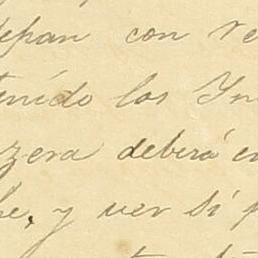 depan con re
tenido los Yn
zera deberá en
he, y ver si p